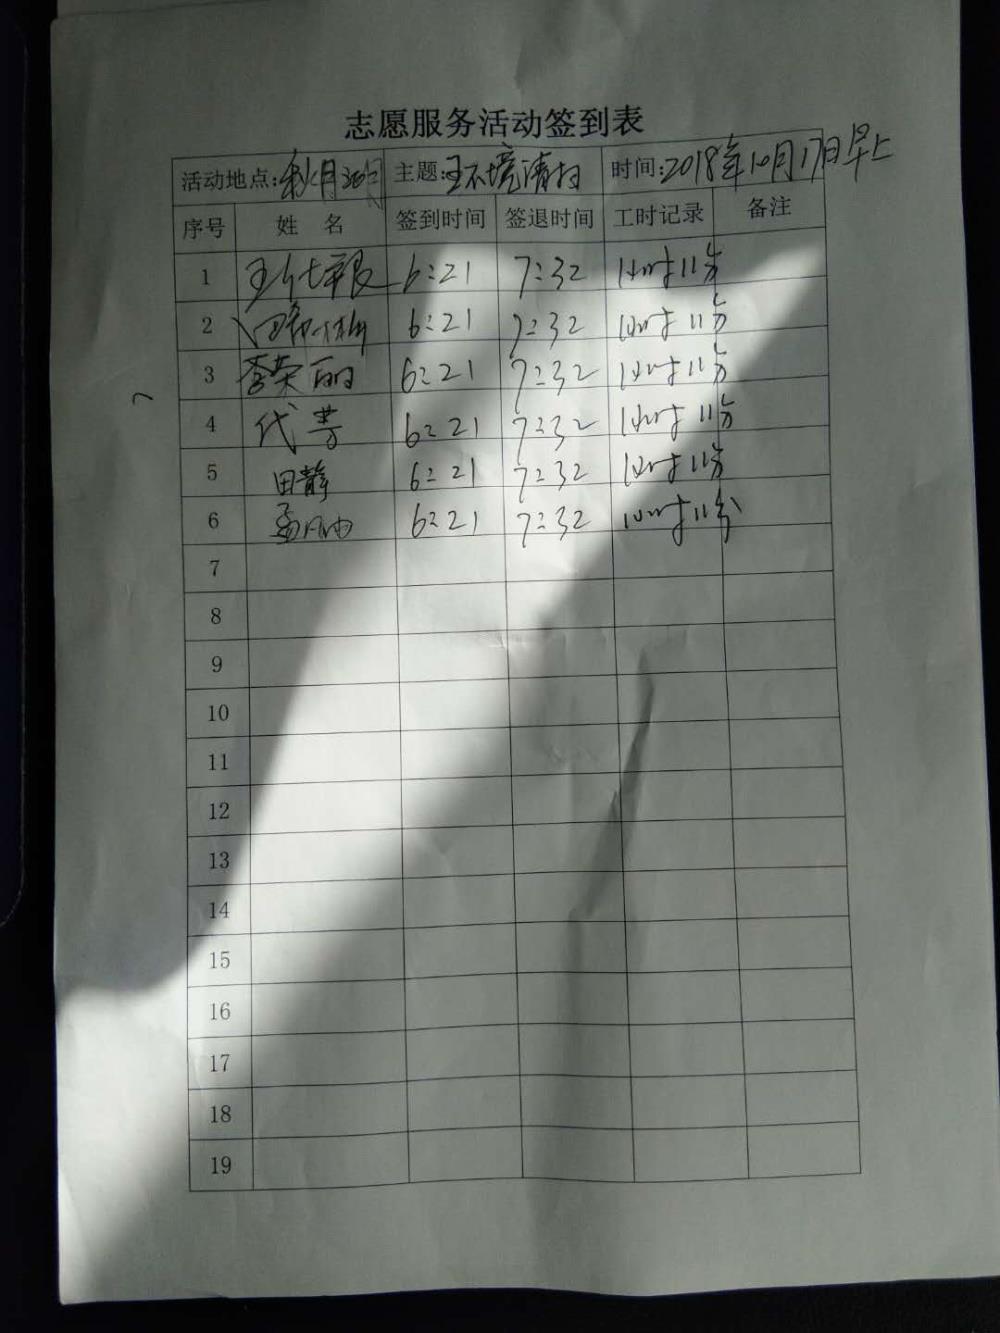 志愿服务活动签到表
活动地点: 秋月 主题: 环境清扫 时间: 2018年10月17日早上
序号 姓 名 签到时间 签退时间 工时记录 备注
1 6:21 7:32 1小时11分
2 6:21 7:32 1小时11分
3 李荣丽 6:21 7:32 1小时11分
4 代芳 6:21 7:32 1小时11分
5 田静 6:21 7:32 1小时11分
6 6:21 7:32 1小时11分
7
8
9
10
11
12
13
14
15
16
17
18
19